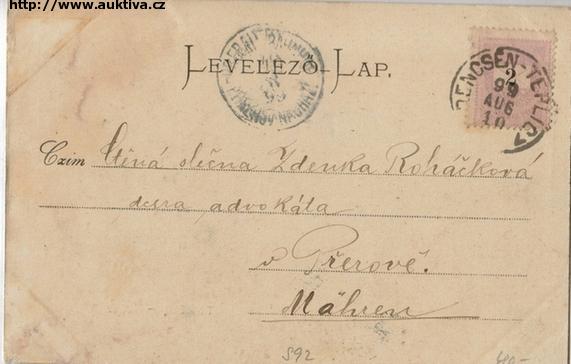 http://www.auktiva.cz
LEVELEZŐ-LAP.
2
TRENCSÉN-TEPLICZ
99
AUG
10
Czim Ctěná slečna Zdenka Roháčková
dcera advokáta
v Přerově.
Mähren
592
400-